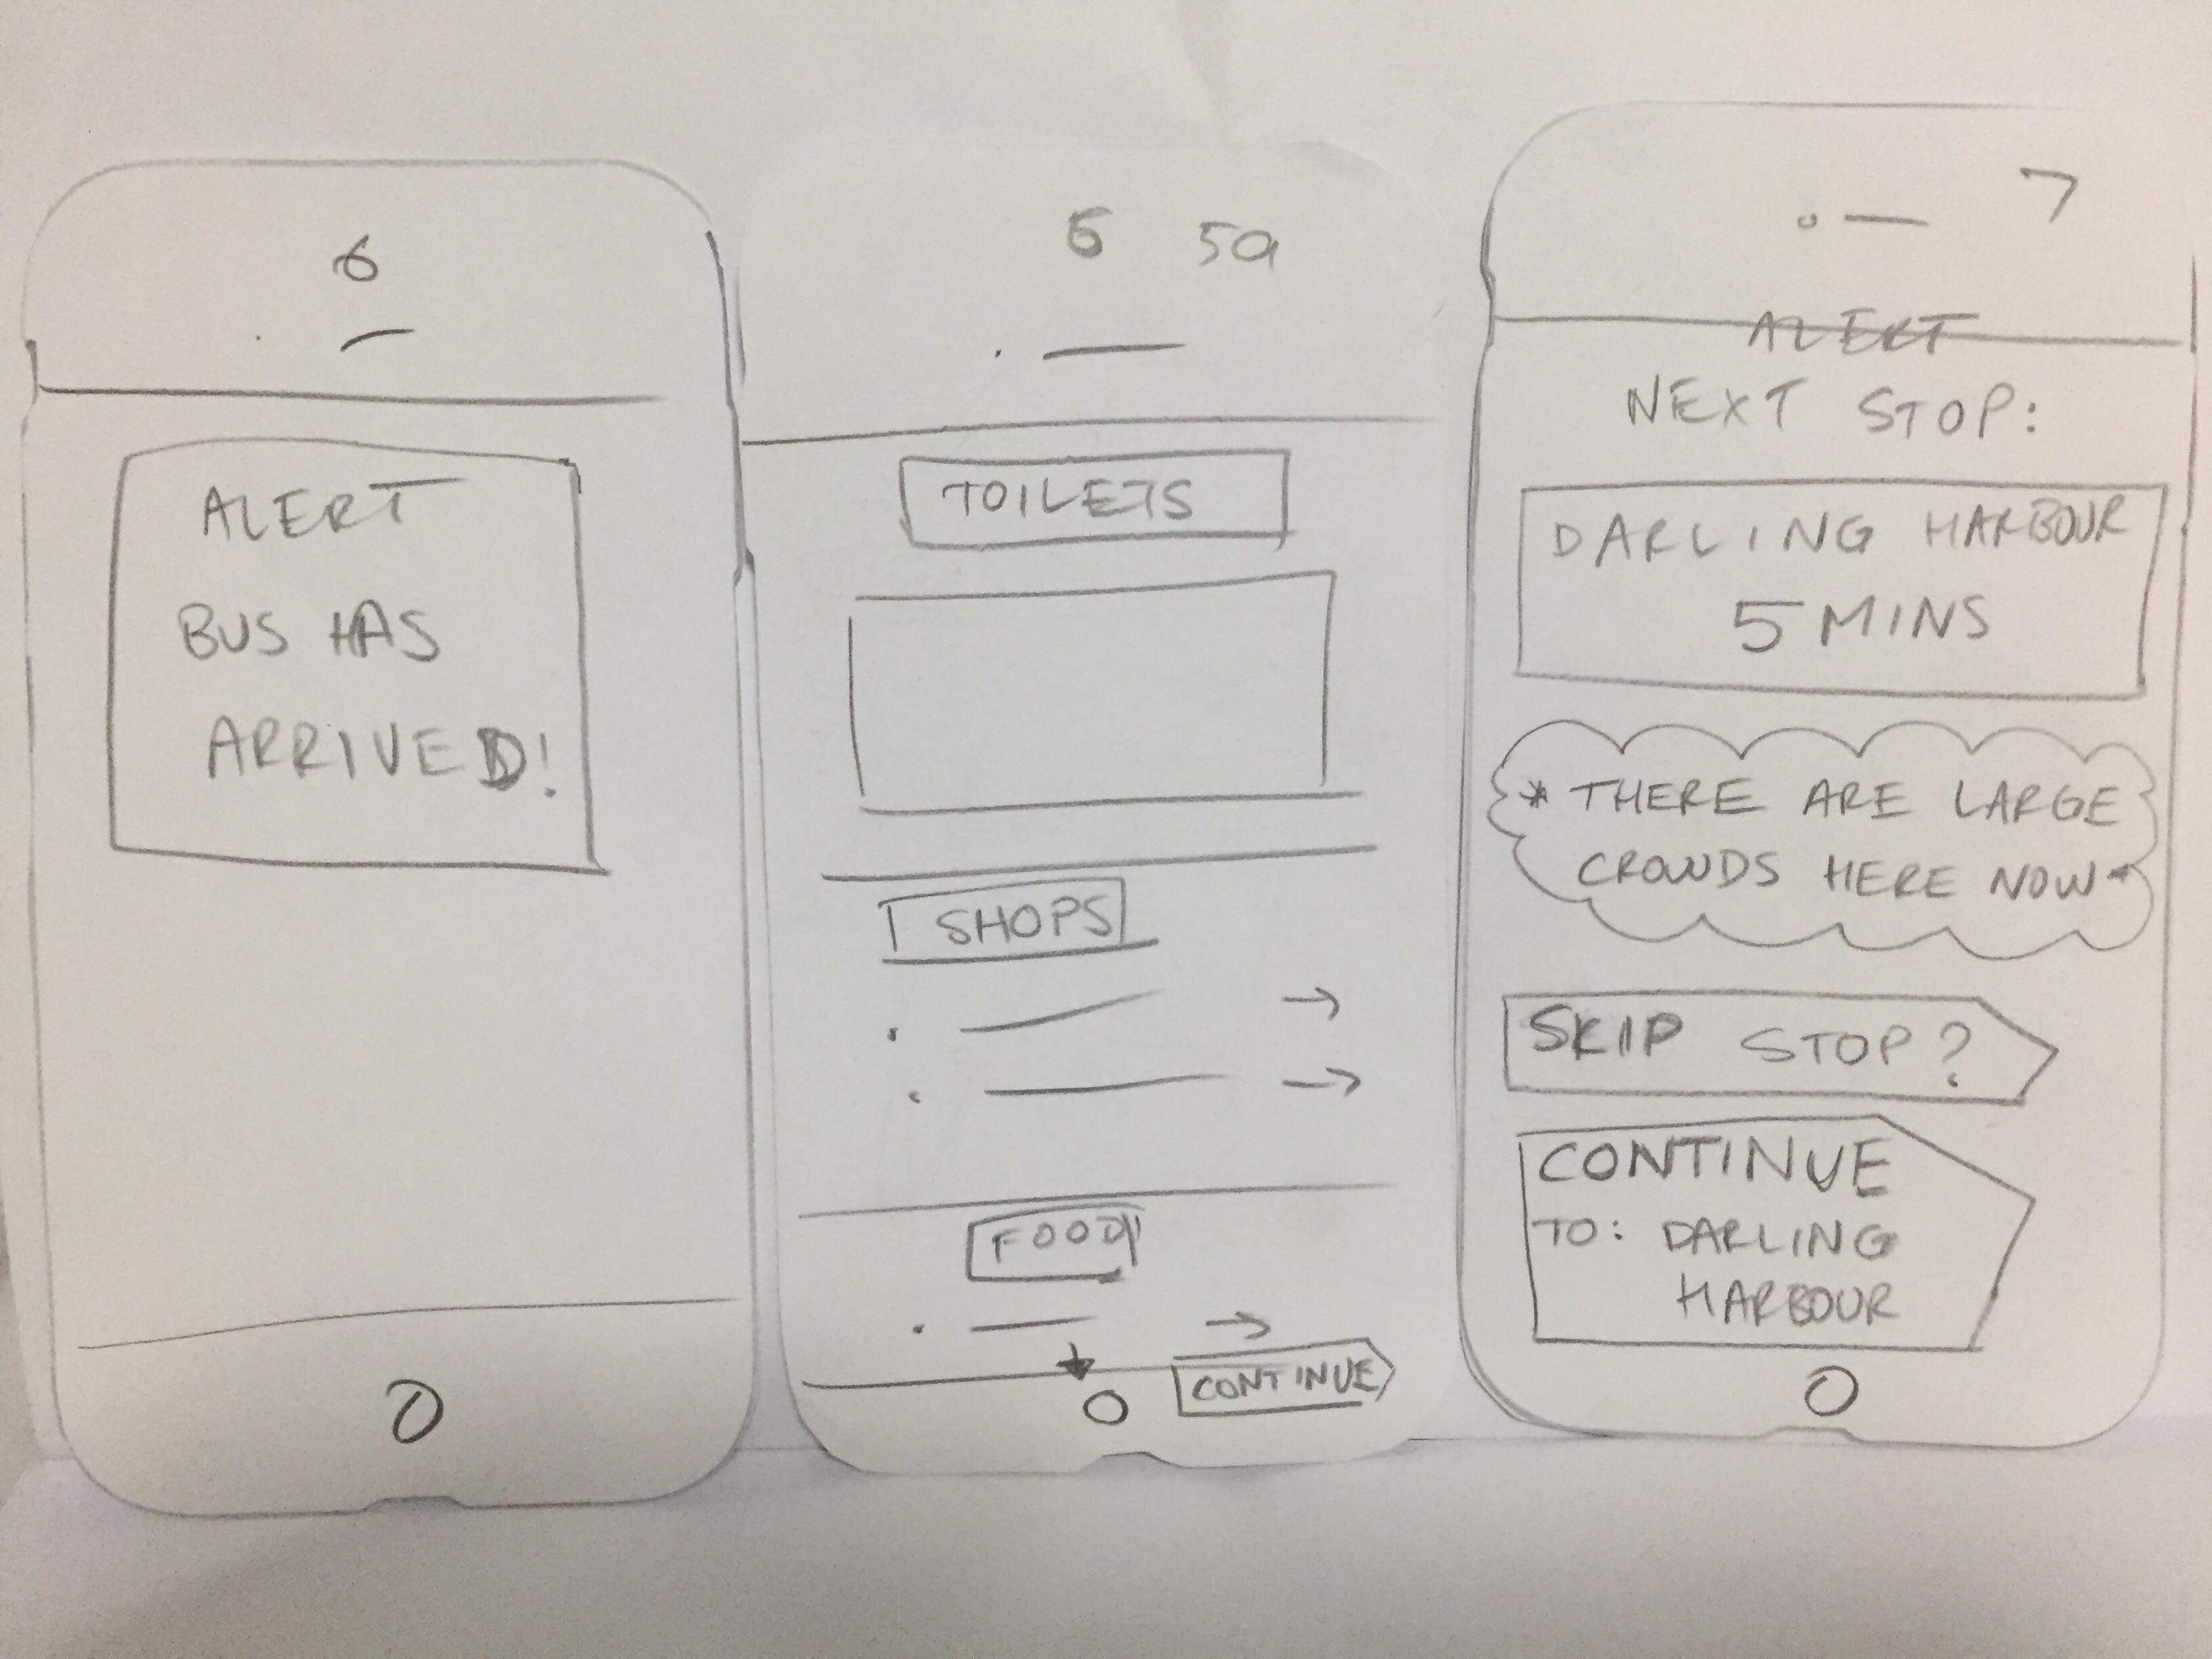 6
ALERT
BUS HAS
ARRIVED!
6 5a
TOILETS
SHOPS
FOOD
CONTINUE
7
ALERT
NEXT STOP:
DARLING HARBOUR
5 MINS
* THERE ARE LARGE
CROWDS HERE NOW *
SKIP STOP?
CONTINUE
TO: DARLING
HARBOUR